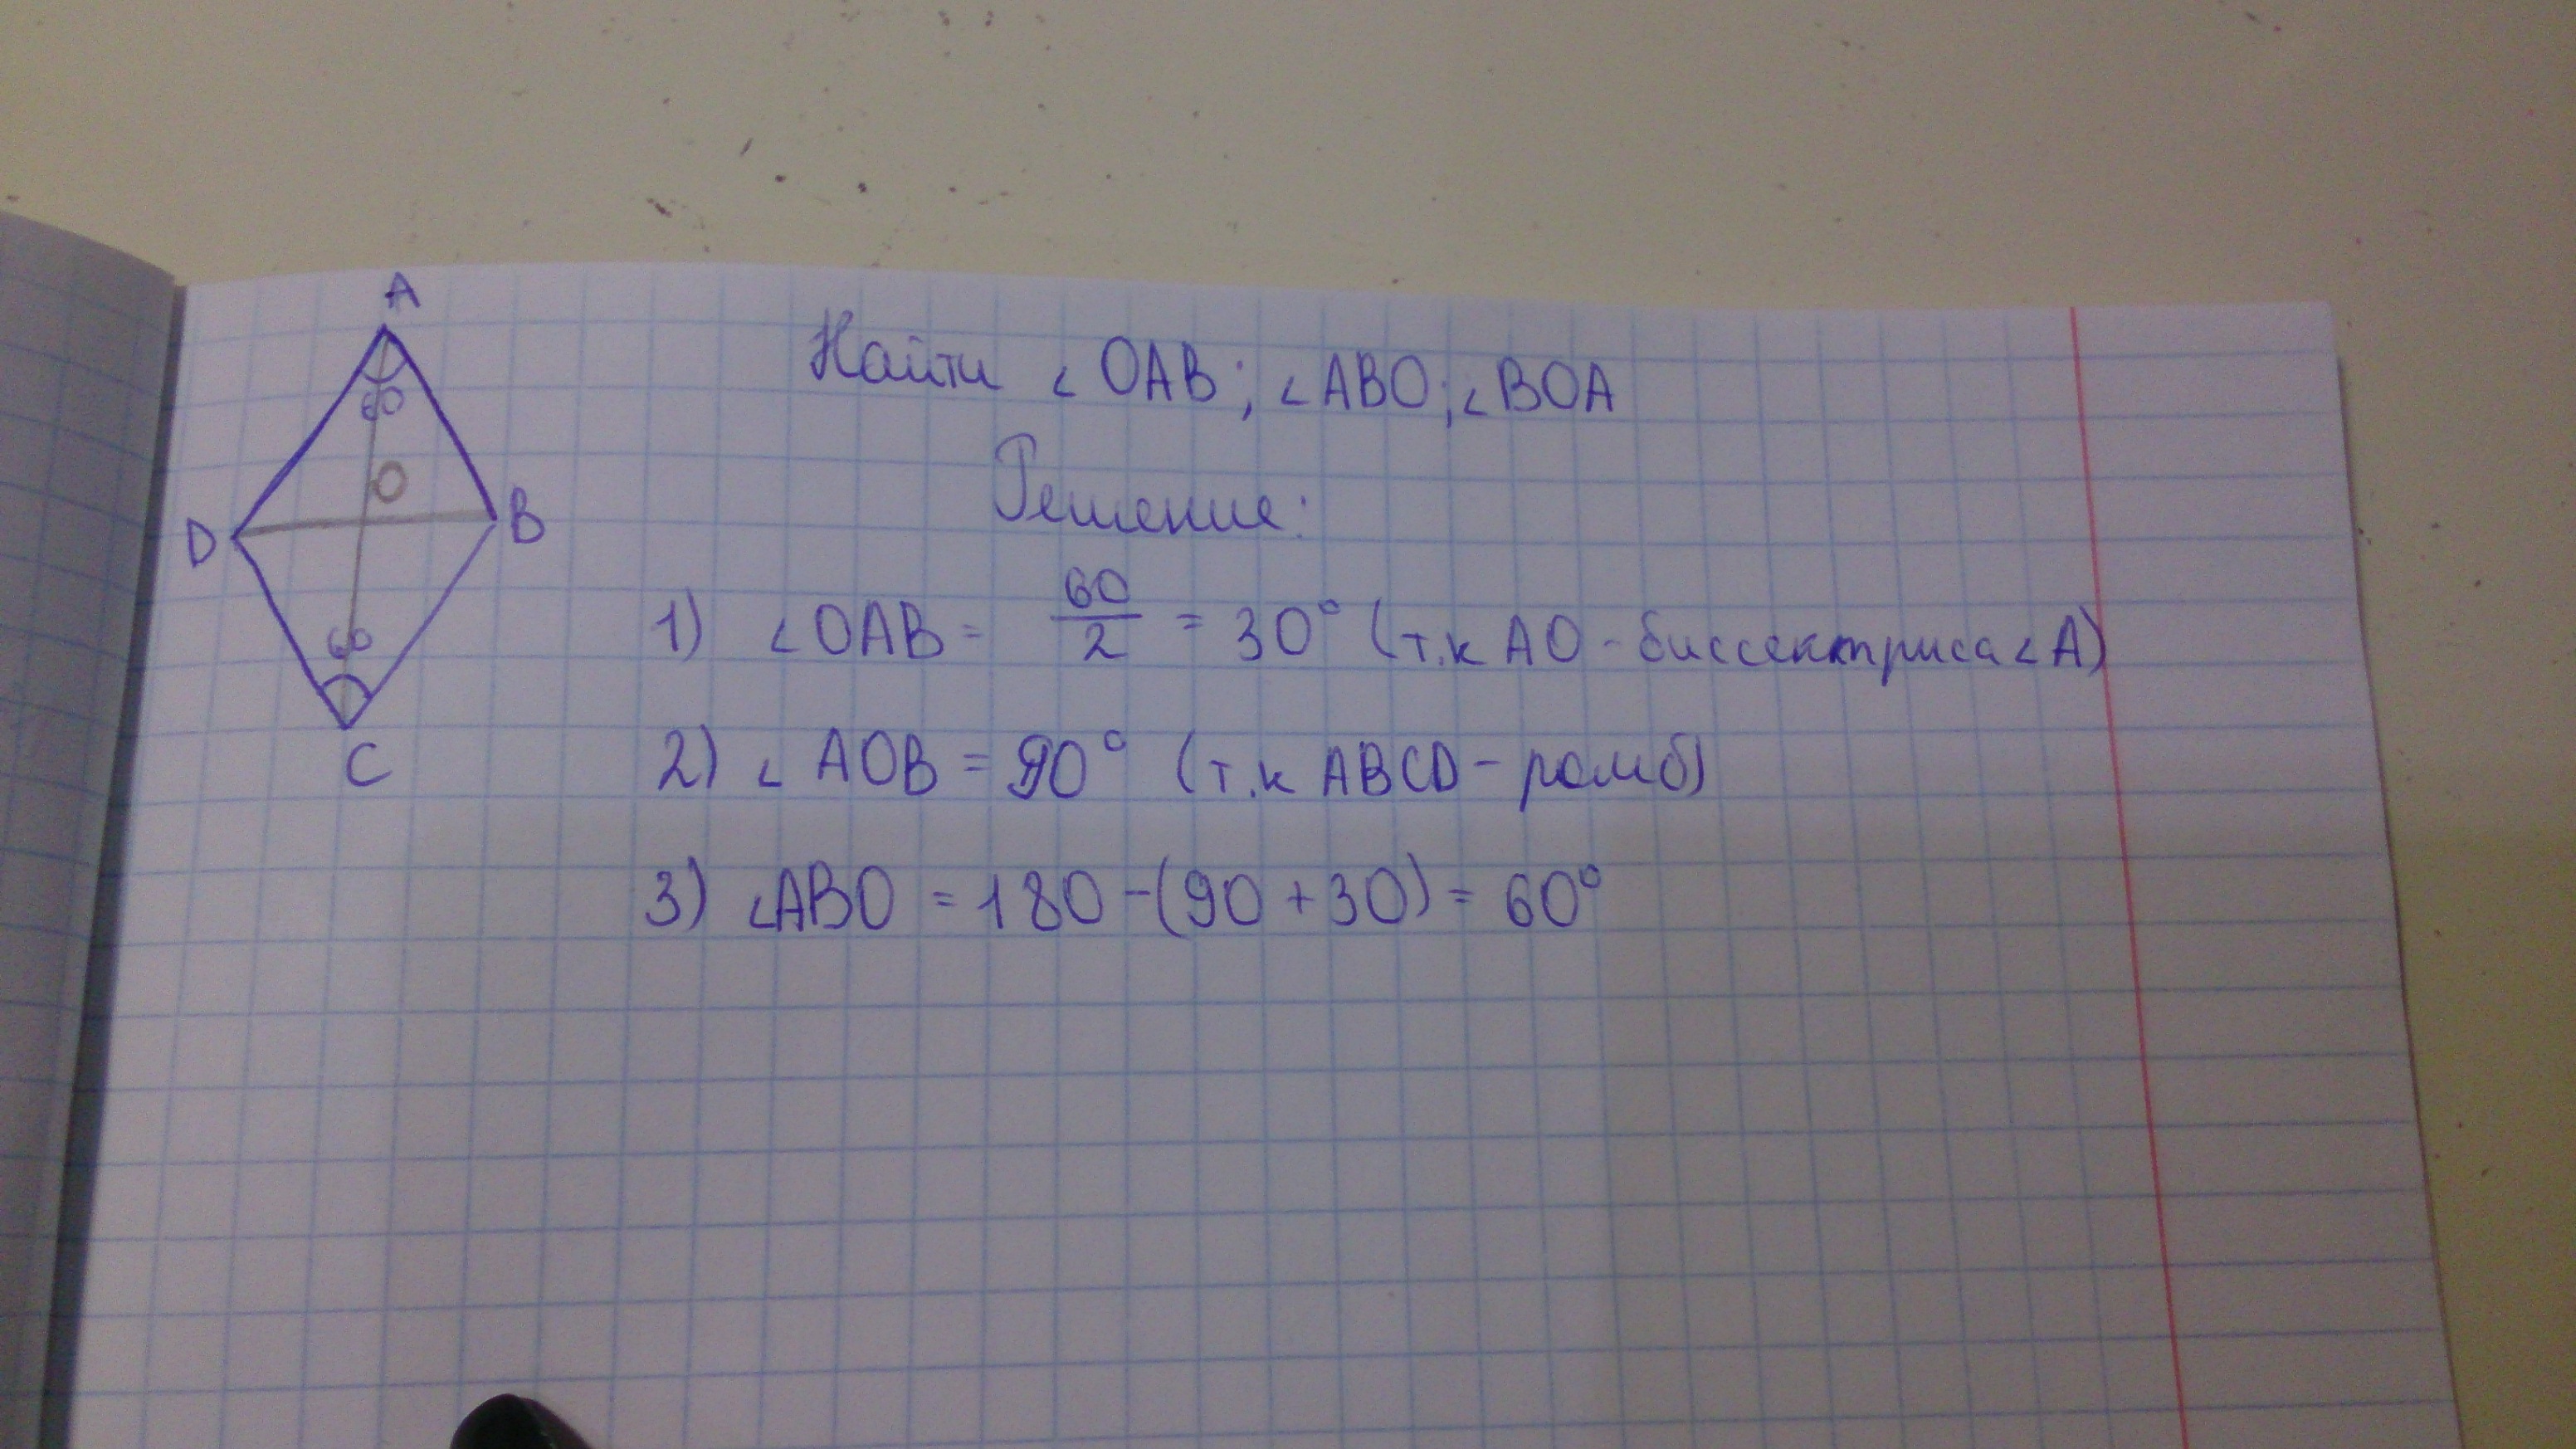 A
60
O
D
B
60
C
Найти ∠OAB; ∠ABO; ∠BOA
Решение:
1) ∠OAB = 60/2 = 30° (т.к AO - биссектриса ∠A)
2) ∠ AOB = 90° (т.к ABCD - ромб)
3) ∠ABO = 180 - (90 + 30) = 60°